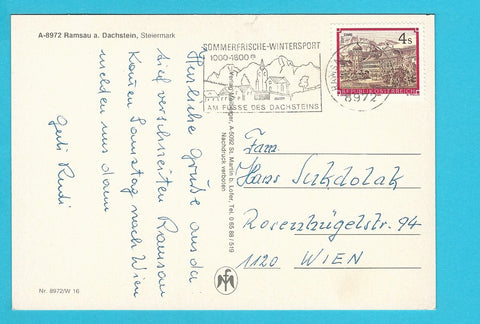 A-8972 Ramsau a. Dachstein, Steiermark
SOMMERFRISCHE-WINTERSPORT
1000-1800m
AM FUSSE DES DACHSTEINS
8972
4s
REPUBLIK ÖSTERREICH
Herzliche Grüße aus da
tief verschneiten Ramsau
Kommen Samstag nach Wien
melden uns dann
Gerti Rudi
A-5092 St. Martin b. Lofer, Tel. 0 65 88 / 519
Nachdruck verboten
Fam.
Hans Sukdolak
Rosenhügelstr. 94
1120 WIEN
Nr. 8972/W 16